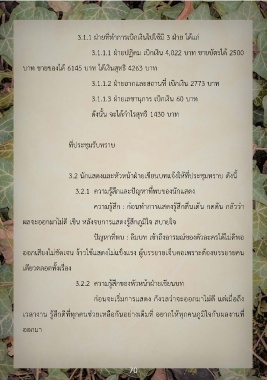 3.1.1 ฝ่ายที่ทำการเบิกเงินไปใช้มี 3 ฝ่าย ได้แก่
3.1.1.1 ฝ่ายปฏิคม เบิกเงิน 4,022 บาท ขายบัตรได้ 2500
บาท ขายของได้ 6145 บาท ได้เงินสุทธิ 4263 บาท
3.1.1.2 ฝ่ายฉากและสถานที่ เบิกเงิน 2773 บาท
3.1.1.3 ฝ่ายเลขานุการ เบิกเงิน 60 บาท
ดังนั้น จะได้กำไรสุทธิ 1430 บาท
ที่ประชุมรับทราบ
3.2 นักแสดงและหัวหน้าฝ่ายเขียนบทแจ้งให้ที่ประชุมทราบ ดังนี้
3.2.1 ความรู้สึกและปัญหาที่พบของนักแสดง
ความรู้สึก : ก่อนทำการแสดงรู้สึกตื่นเต้น กดดัน กลัวว่า
ผลจะออกมาไม่ดี เขิน หลังจบการแสดงรู้สึกภูมิใจ สบายใจ
ปัญหาที่พบ : ลืมบท เข้าถึงอารมณ์ของตัวละครได้ไม่ดีพอ
ออกเสียงไม่ชัดเจน ผู้บรรยายเจ็บคอเพราะต้องบรรยายคน
เดียวตลอดทั้งเรื่อง
3.2.2 ความรู้สึกของหัวหน้าฝ่ายเขียนบท
ก่อนจะเริ่มการแสดง กังวลว่าจะออกมาไม่ดี แต่เมื่อถึง
เวลางาน รู้สึกดีที่ทุกคนช่วยเหลือกันอย่างเต็มที่ อยากให้ทุกคนภูมิใจกับผลงานที่
ออกมา
70